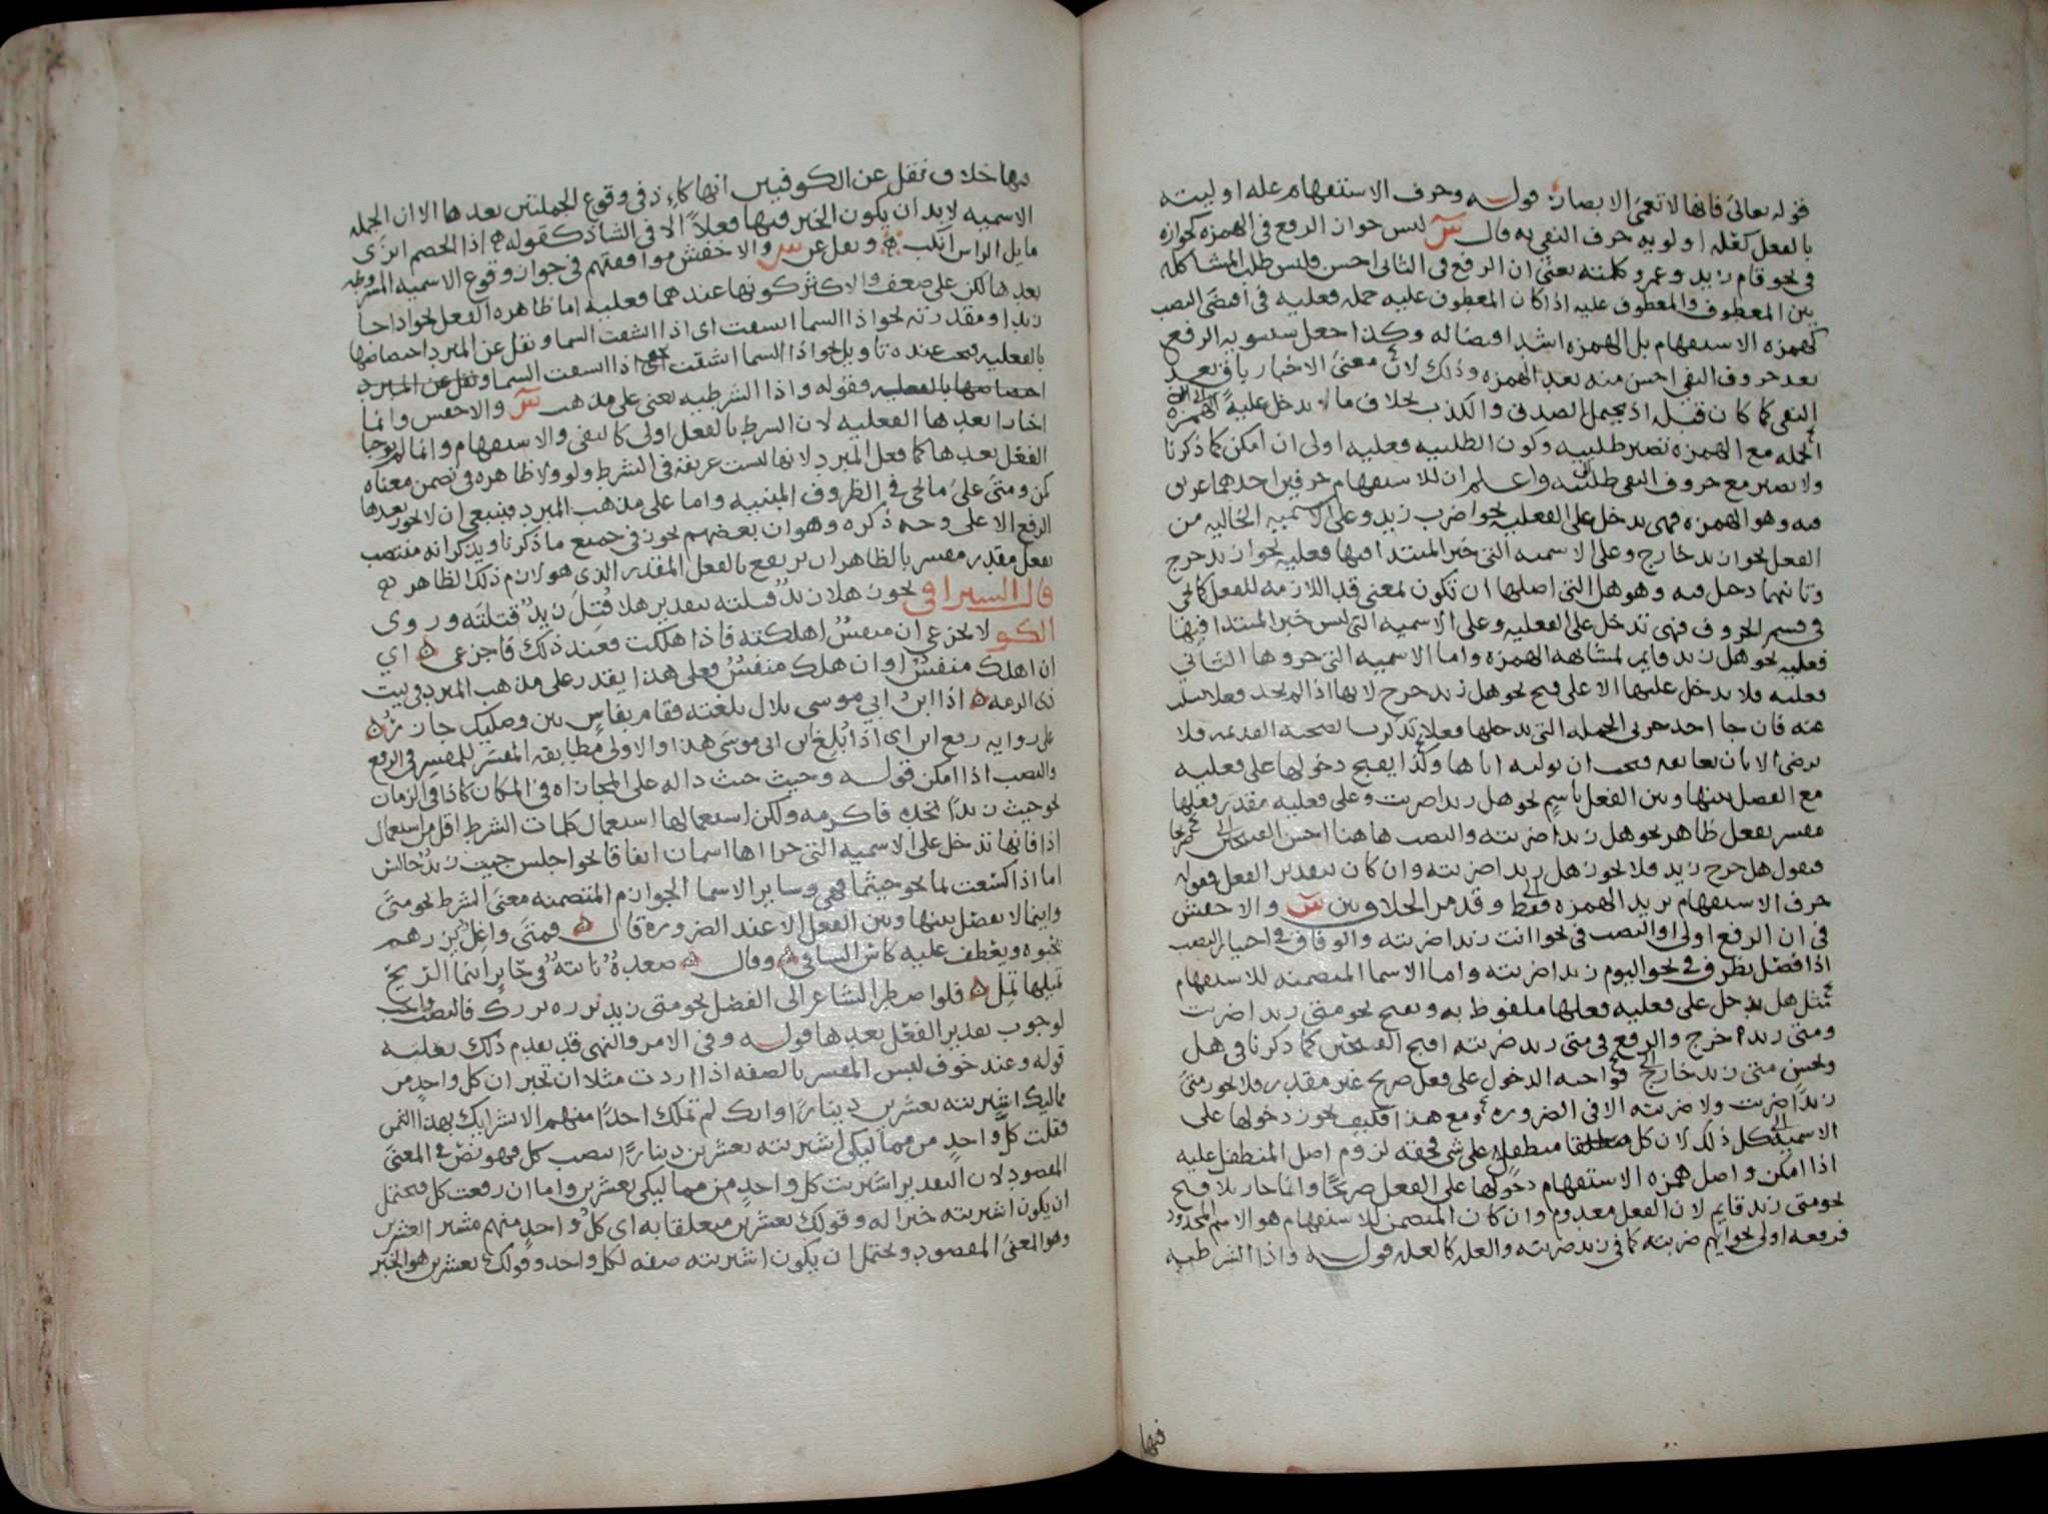 قوله تعالى فانها لا تعمى الابصار قوله وحرف الاستفهام عله اوليته
بالفعل كعله اولويه حرف النفي به قال س ليس جواز الرفع في الهمزه كجوازه
في نحو قام زيد وعمرو كلمته يعني ان الرفع في الثاني احسن وليس طلب المشاكله
بين المعطوف والمعطوف عليه اذا كان المعطوف عليه جمله فعليه في اقتضى النصب
كهمزه الاستفهام بل الهمزه اشد اقتضا له وكذا جعل سيبويه الرفع
بعد حروف النفي احسن منه بعد الهمزه وذلك لان معنى الاخبار باق بعد
النفي كما كان قبله اذ يحتمل الصدق والكذب بخلاف ما تدخل عليه الهمزه
الجمله مع الهمزه تصير طلبيه وكون الطلبيه فعليه اولى ان امكن كما ذكرنا
ولا تصير مع حروف النفي طلبيه واعلم ان للاستفهام حرفين احدهما عريق
فيه وهو الهمزه فهي تدخل على الفعليه نحو اضرب زيد وعلى الاسميه الخاليه من
الفعل نحو ازيد خارج وعلى الاسميه التي خبر المبتدا فيها فعليه نحو ازيد خرج
وثانيهما دخيل فيه وهو هل التي اصلها ان تكون بمعنى قد اللازمه للفعل كما يجي
في قسم الحروف فهي تدخل على الفعليه وعلى الاسميه التي ليس خبر المبتدا فيها
فعليه نحو هل زيد قايم لمشابهه الهمزه واما الاسميه التي جزوها الثاني
فعليه فلا تدخل عليها الا على قبح نحو هل زيد خرج لانها اذا لم تجد فعلا تسلت
عنه فان جا احد جزيى الجمله التي تدخلها فعلا تذكرت الصحبه القديمه فلا
ترضى الا بان تعانقه فيجب ان توليه اياها وكذا يقبح دخولها على فعليه
مع الفصل بينها وبين الفعل باسم نحو هل زيدا ضربت وعلى فعليه مقدر فعلها
مفسر بفعل ظاهر نحو هل زيدا ضربته والنصب هاهنا احسن القبيحين
فتقول هل خرج زيد فلا يجوز هل زيدا ضربته وان كان بتقدير الفعل فقوله
حرف الاستفهام يريد الهمزه فقط وقد مر الخلاف بين س والاخفش
في ان الرفع اولى او النصب في نحو اانت زيدا ضربته والوفاق في اختيار النصب
اذا فصل بظرف في نحو اليوم زيدا ضربته واما الاسما المتضمنه للاستفهام
مثل هل تدخل على فعليه فعلها ملفوظ به ويقبح نحو متى زيدا ضربت
ومتى زيد خرج والرفع في متى زيد ضربته اقبح القبيحين كما ذكرنا في هل
ويحسن متى زيد خارج فواجبه الدخول على فعل صريح غير مقدر فلا يجوز متى
زيدا ضربت ولا ضربته الا في الضروره ومع هذا فكيف يجوز دخولها على
الاسميه كل ذلك لان كل متطفل على شي فحقه لزوم اصل المتطفل عليه
اذا امكن واصل همزه الاستفهام دخولها على الفعل صريحا وانما جاز بلا قبح
نحو متى زيد قايم لان الفعل معدوم وان كان المتضمن للاستفهام هو الاسم المحدود
فرفعه اولى نحو ايهم ضربته كما في زيد ضربته والعله كالعله قوله واذا الشرطيه
فيها
فيها خلاف نقل عن الكوفيين انها كاذ في وقوع الجملتين بعدها الا ان الجمله
الاسميه لا بد ان يكون الخبر فيها فعلا الا في الشاذ كقوله اذا الخصم ابزى
مايل الراس انكب ونقل عن س والاخفش موافقتهم في جواز وقوع الاسميه المشروطه
بعدها لكن على ضعف والاكثر كونها عندهما فعليه اما ظاهره الفعل نحو اذا جا
زيد او مقدرته نحو اذا السما انشقت اي اذا انشقت السما ونقل عن المبرد اختصاصها
بالفعليه فيجب عنده تاويل نحو اذا السما انشقت اي اذا انشقت السما ونقل عن المبرد
اختصاصها بالفعليه فقوله واذا الشرطيه يعني على مذهب س والاخفش وانما
اختارا بعدها الفعليه لان الشرط بالفعل اولى كالنفي والاستفهام وانما لم يوجبا
الفعل بعدها كما فعل المبرد لانها ليست عريقه في الشرط ولو ولا ظاهره في تضمن معناه
كمن ومتى على ما يجي في الظروف المبنيه واما على مذهب المبرد فينبغي ان لا يجوز بعدها
الرفع الا على وجه ذكره وهو ان بعضهم يجوز في جميع ما ذكرنا ويذكر انه منتصب
بفعل مقدر مفسر بالظاهر ان يرتفع بالفعل المقدر الذي هو لازم ذلك الظاهر
قال السيرافي يجوز هلا زيد قتلته بتقدير هلا قتل زيد قتلته وروى
الكو لا تجزعي ان منفس اهلكته فاذا هلكت فعند ذلك فاجزعي اي
ان اهلك منفس او ان هلك منفس فعلى هذا يقدر على مذهب المبرد في بيت
ذي الرمه اذا ابن ابي موسى بلال بلغته فقام بفاس بين وصليك جازر
على روايه رفع ابن اي اذا بلغ ابن ابي موسى هذا والاولى مطابقه المفسر للمفسر في الرفع
والنصب اذا امكن قوله وحيث حيث داله على المجازاه في المكان كاذا في الزمان
نحو حيث زيدا تجده فاكرمه ولكن استعمالها استعمال كلمات الشرط اقل من استعمال
اذا فانها تدخل على الاسميه التي جزاها اسمان اتفاقا نحو اجلس حيث زيد جالس
اما اذا كسعت بما نحو حيثما فهي وساير الاسما الجوازم المتضمنه معنى الشرط نحو متى
واينما لا يفصل بينها وبين الفعل الا عند الضروره قال فمتى واغل يزرهم
يحيوه ويعطف عليه كاس الساقي وقال صعده نابته في حاير اينما الريح
تميلها تمل فلو اضطر الشاعر الى الفصل نحو متى زيد تزره يزرك فالنصب واجب
لوجوب تقدير الفعل بعدها قوله وفي الامر والنهي قد تقدم ذلك بعلته
قوله وعند خوف لبس المفسر بالصفه اذا اردت مثلا ان تخبر ان كل واحد من
مماليكك اشتريته بعشرين دينارا وانك لم تملك احدا منهم الا بشرايك بهذا الثمن
فقلت كل واحد من مماليكي اشتريته بعشرين دينارا بنصب كل فهو نص في المعنى
المقصود لان التقدير اشتريت كل واحد من مماليكي بعشرين واما ان رفعت كل فيحتمل
ان يكون اشتريته خبرا له وقولك بعشرين متعلقا به اي كل واحد منهم مشترى بعشرين
وهو المعنى المقصود ويحتمل ان يكون اشتريته صفه لكل واحد وقولك بعشرين هو الخبر